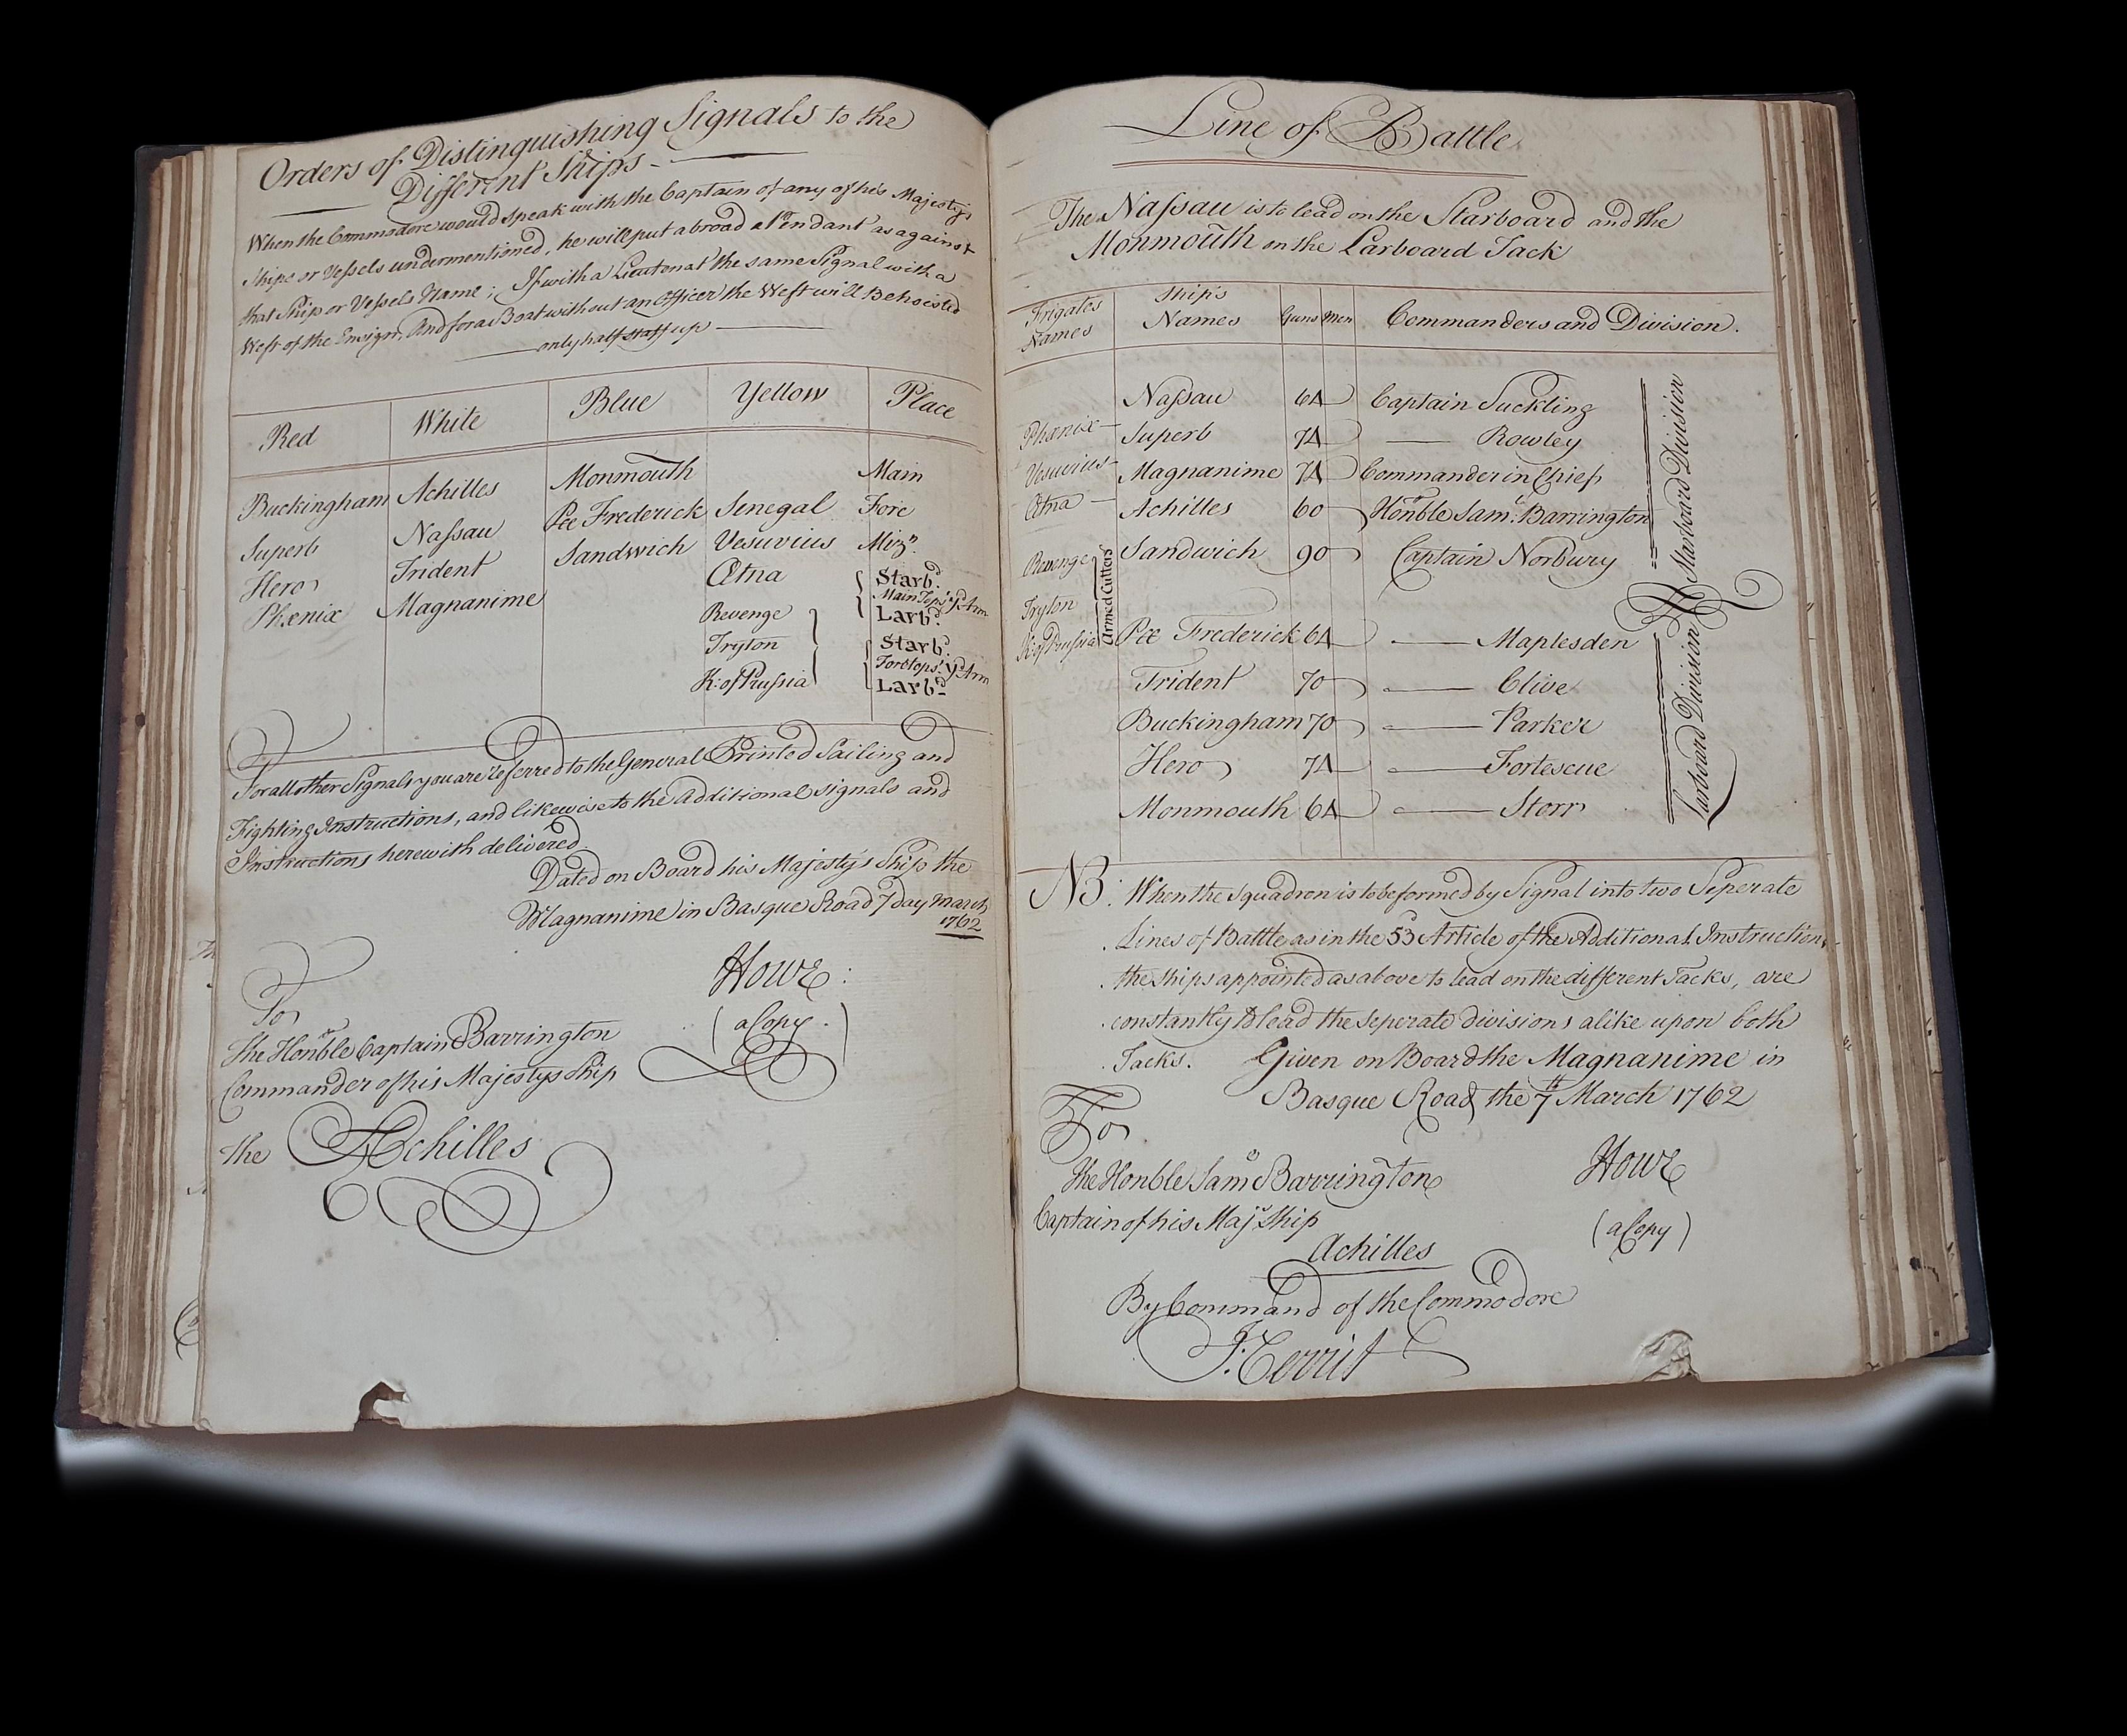 Orders of Distinguishing Signals to the
Different Ships
When the Commodore would speak with the Captain of any of his Majestys
Ships or Vessels undermentioned, he will put abroad a Pendant as against
that Ship or Vessels Name; If with a Lieutenat the same Signal with a
Weft of the Ensign, And for a Boat without an Officer the Weft will Be hoisted
only half staff up
Red White Blue Yellow Place
Buckingham Achilles Monmouth Main
Superb Nassau Pce Frederick Senegal Fore
Hero Trident Sandwich Vesuvius Mizn.
Phœnix Magnanime Ætna Starbd.
Main Tops.l Yd. Arm
Revenge Larbd.
Tryton Starbd.
Foretops.l Yd. Arm
K: of Prussia Larbd.
For all other Signals you are referred to the General Printed Sailing and
Fighting Instructions, and likewise to the Additional signals and
Instructions herewith delivered.
Dated on Board his Majesty's Ship the
Magnanime in Basque Road 7 day March
1762
Howe:
(a Copy.)
To
The Honble Captain Barrington
Commander of his Majestys Ship
the Achilles
Line of Battle
The Nassau is to lead on the Starboard and the
Monmouth on the Larboard Tack
Frigates Names Ship's Names Guns Men Commanders and Division.
Nassau 64 Captain Suckling
Phœnix Superb 74 Rowley
Vesuvius Magnanime 74 Commander in Chief
Ætna Achilles 60 Honble Saml. Barrington
Revenge Sandwich 90 Captain Norbury
Starboard Division
Tryton
Armed Cutters
K: of Prussia Pce Frederick 64 Maplesden
Trident 70 Clive
Buckingham 70 Parker
Hero 74 Fortescue
Monmouth 64 Storr
Larboard Division
NB: When the Squadron is to be formed by Signal into two Seperate
Lines of Battle as in the 53d Article of the Additional Instructions
the ships appointed as above to lead on the different Tacks, are
constantly to lead the seperate divisions alike upon both
Tacks. Given on Board the Magnanime in
Basque Road the 7th March 1762
To
The Honble Saml Barrington
Howe
Captain of his Majs. Ship
(a Copy)
Achilles
By Command of the Commodore